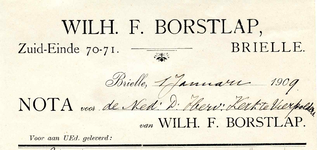 WILH. F. BORSTLAP,
Zuid-Einde 70-71. BRIELLE.
Brielle, 1 Januari 1909
NOTA voor de Ned: D: Herv: Kerk te Vierpolders
van WILH. F. BORSTLAP.
Voor aan UEd. geleverd: